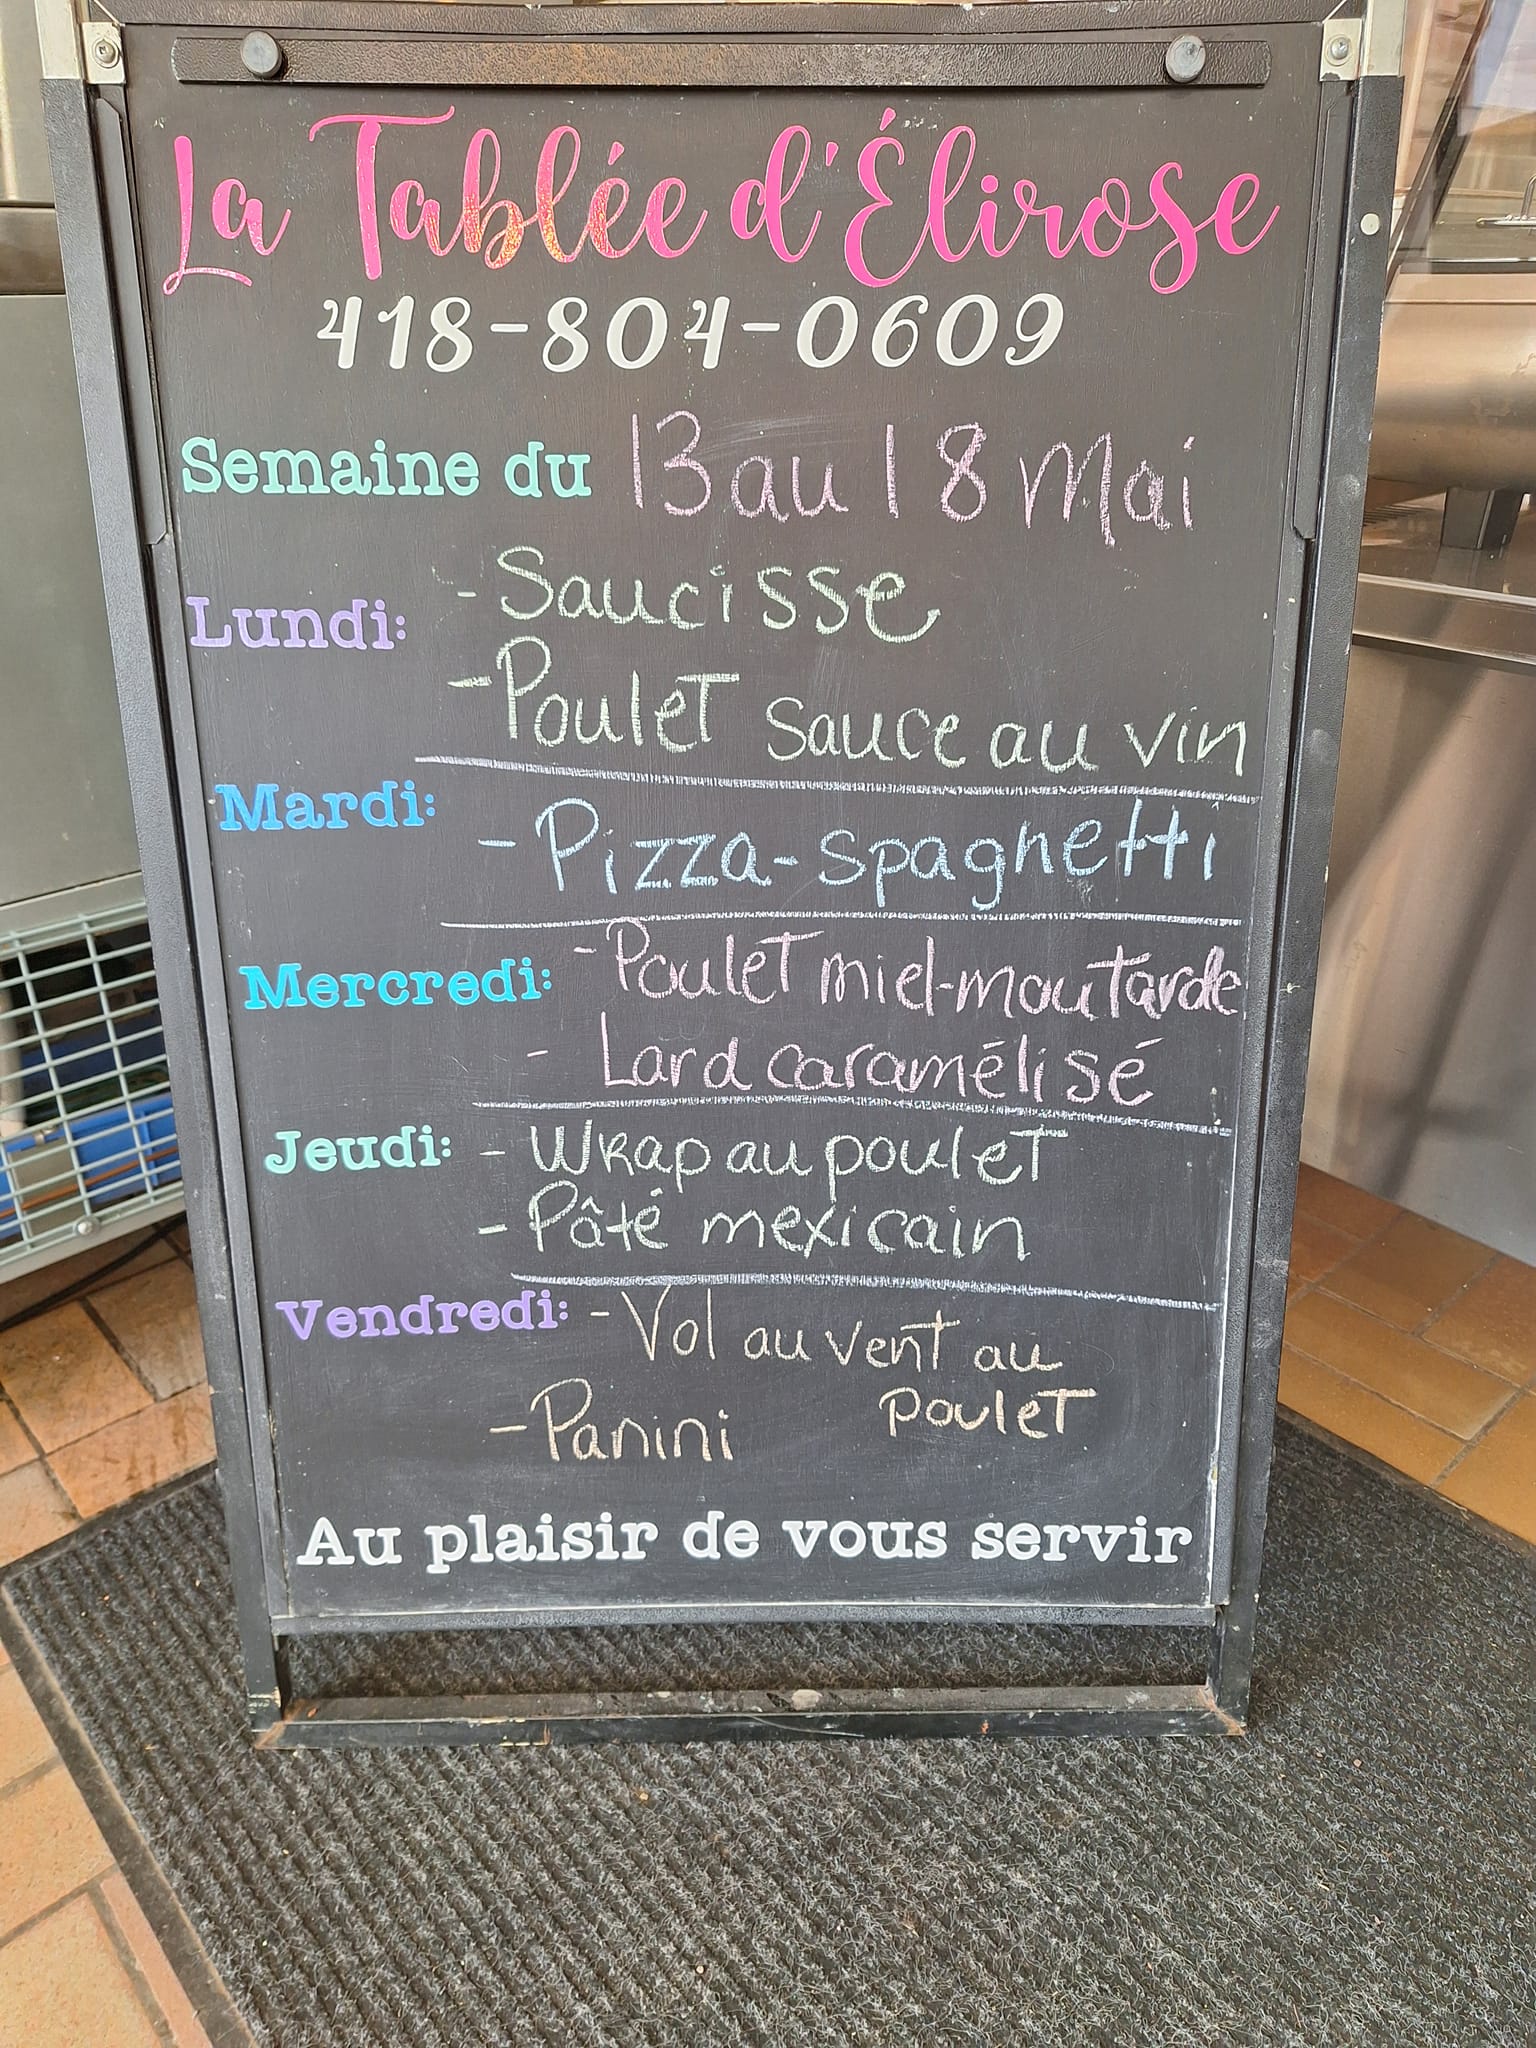 La Tablée d'Élirose
418-804-0609
Semaine du 13 au 18 Mai
Lundi: - Saucisse
- Poulet sauce au vin
Mardi: - Pizza-spaghetti
Mercredi: - Poulet miel-moutarde
- Lard caramélisé
Jeudi: - Wrap au poulet
- Pâté mexicain
Vendredi: - Vol au vent au
poulet
- Panini
Au plaisir de vous servir